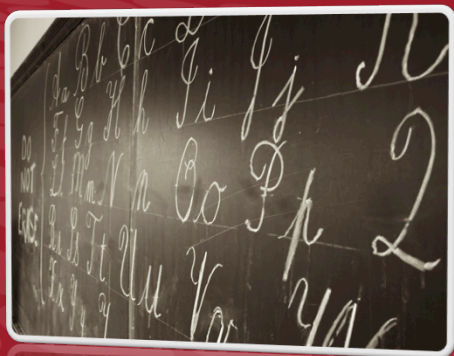 DO
NOT
ERASE
Aa Bb Cc D
Ff Gg Hh Ii Jj K
Mm Nn Oo Pp Q
Rr Ss Tt Uu Vv W
Xx Yy